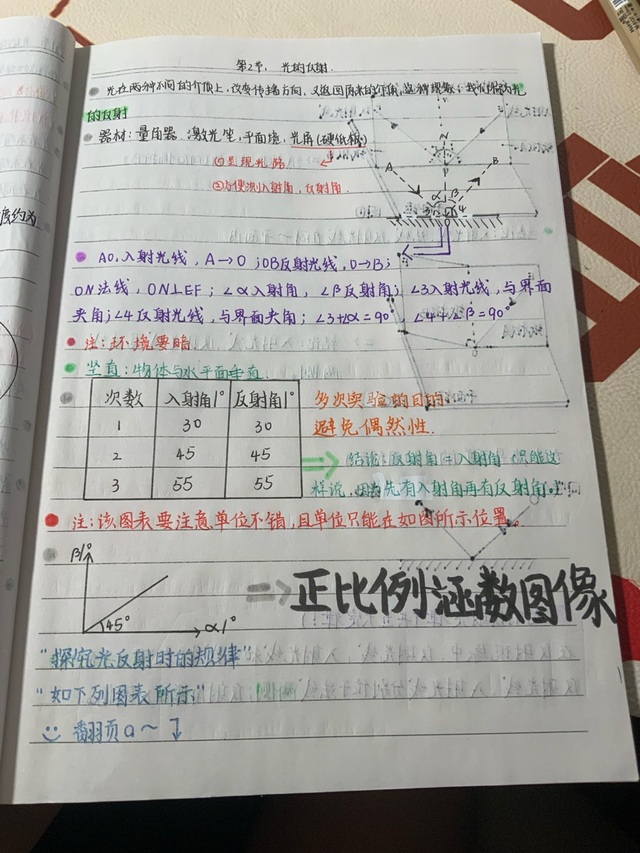 第2节. 光的反射.
光在两种不同的介质上, 改变传播方向, 又返回原来的介质, 这种现象; 我们称为光
的反射
器材: 量角器. 激光笔, 平面镜, 光屏(硬纸板)
①呈现光路.
②方便测入射角, 反射角.
N
A
B
α β
3 4
O
AO, 入射光线, A→O ; OB反射光线, O→B;
ON法线, ON⊥EF ; ∠α入射角, ∠β反射角; ∠3入射光线, 与界面
夹角; ∠4反射光线, 与界面夹角; ∠3+∠α=90° ∠4+∠β=90°
注: 环境要暗
竖直: 物体与水平面垂直.
次数 入射角/° 反射角/°
1 30 30
2 45 45
3 55 55
多次实验的目的:
避免偶然性.
结论: 反射角=入射角 只能这
样说, 因为先有入射角再有反射角.
注: 该图表要注意单位不错, 且单位只能在如图所示位置。
β/°
45°
α/°
=> 正比例函数图像
"探究光反射时的规律"
"如下列图表所示"
翻页a~